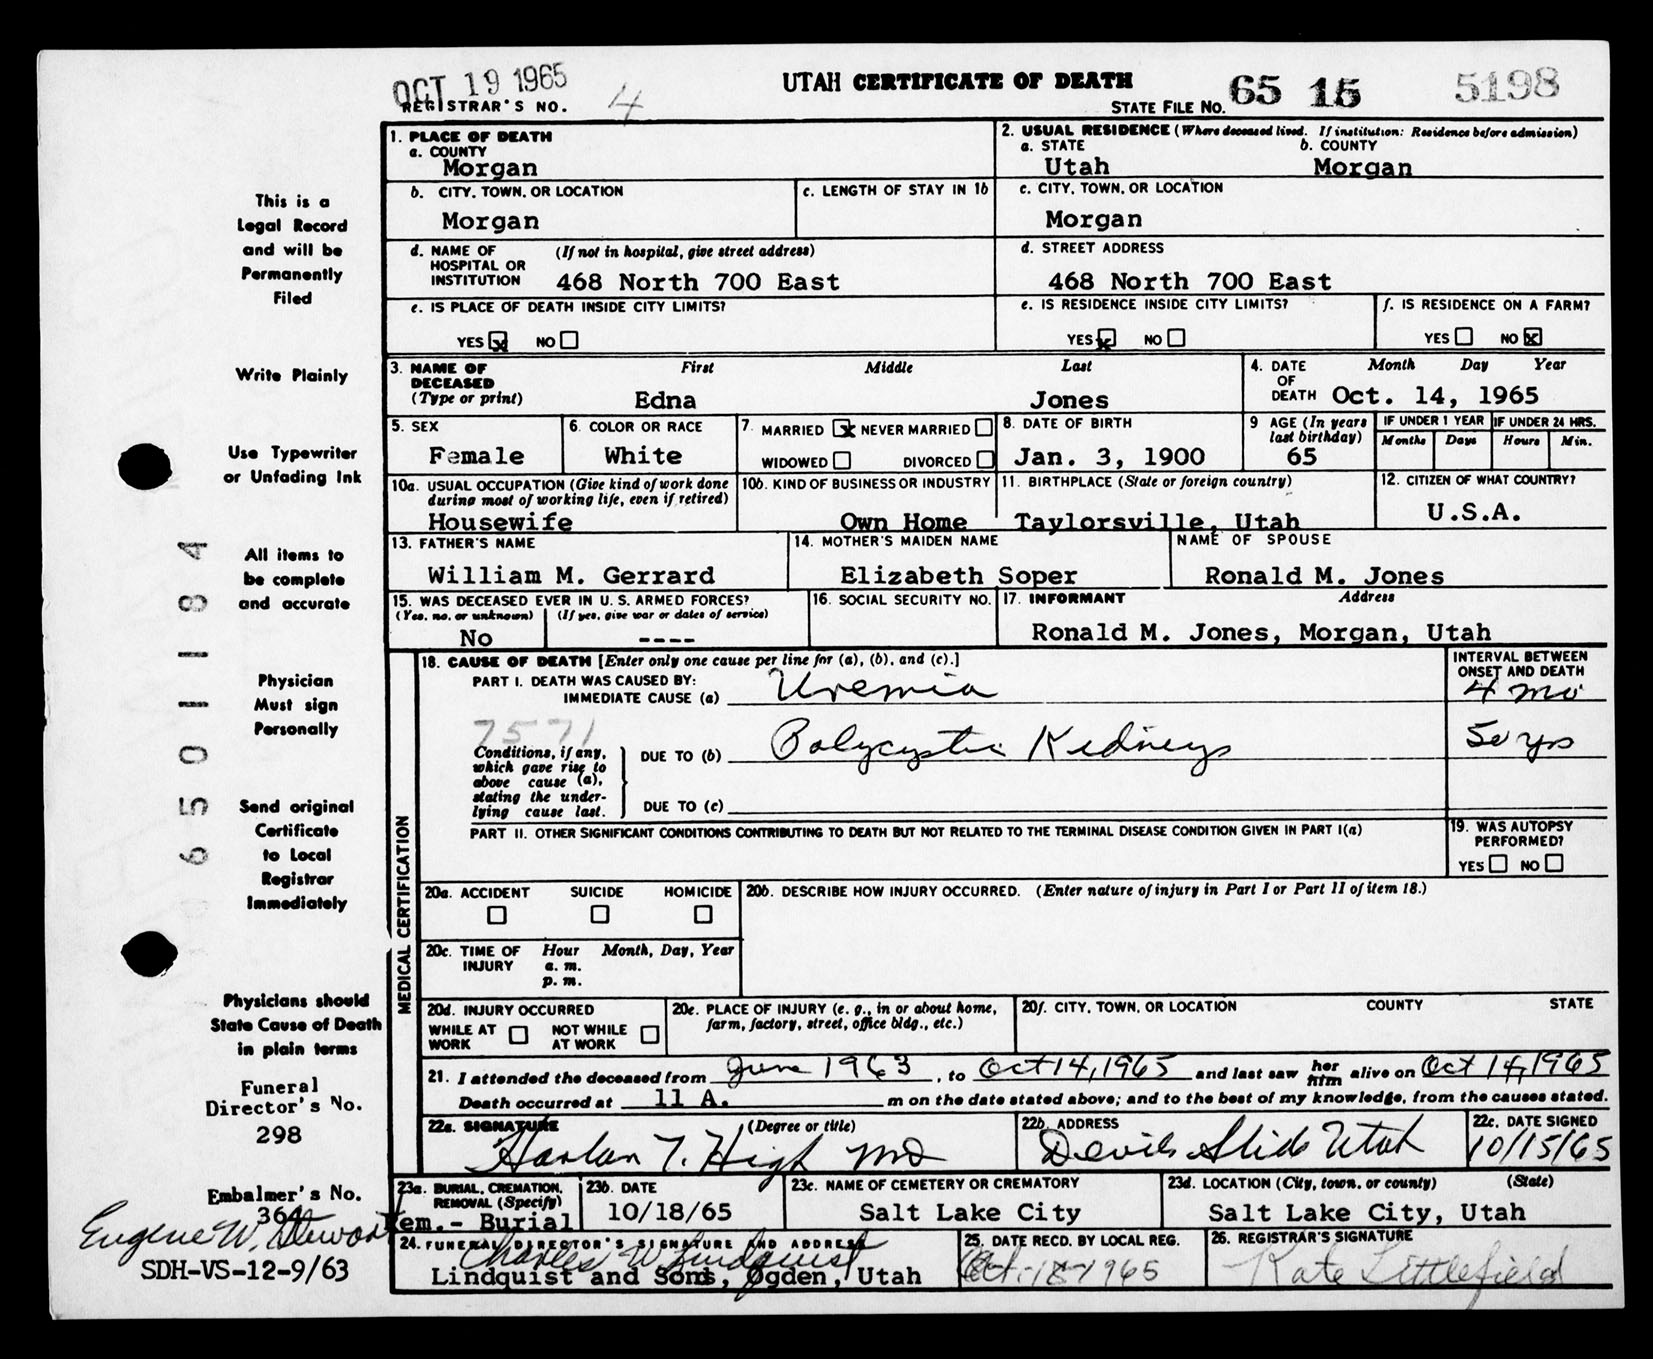 OCT 19 1965
UTAH CERTIFICATE OF DEATH
REGISTRAR'S NO. 4
STATE FILE NO. 65 15 5198
This is a
Legal Record
and will be
Permanently
Filed
Write Plainly
Use Typewriter
or Unfading Ink
All items to
be complete
and accurate
Physician
Must sign
Personally
Send original
Certificate
to Local
Registrar
Immediately
Physicians should
State Cause of Death
in plain terms
Funeral
Director's No.
298
Embalmer's No.
364
Eugene W.
SDH-VS-12-9/63
65011184
1. PLACE OF DEATH
a. COUNTY
Morgan
2. USUAL RESIDENCE (Where deceased lived. If institution: Residence before admission)
a. STATE b. COUNTY
Utah Morgan
b. CITY, TOWN, OR LOCATION
Morgan
c. LENGTH OF STAY IN 1b
c. CITY, TOWN, OR LOCATION
Morgan
d. NAME OF HOSPITAL OR INSTITUTION (If not in hospital, give street address)
468 North 700 East
d. STREET ADDRESS
468 North 700 East
e. IS PLACE OF DEATH INSIDE CITY LIMITS?
YES x NO
e. IS RESIDENCE INSIDE CITY LIMITS?
YES x NO
f. IS RESIDENCE ON A FARM?
YES NO x
3. NAME OF DECEASED (Type or print)
First Middle Last
Edna Jones
4. DATE OF DEATH Month Day Year
Oct. 14, 1965
5. SEX
Female
6. COLOR OR RACE
White
7. MARRIED x NEVER MARRIED
WIDOWED DIVORCED
8. DATE OF BIRTH
Jan. 3, 1900
9 AGE (In years last birthday)
65
IF UNDER 1 YEAR IF UNDER 24 HRS.
Months Days Hours Min.
10a. USUAL OCCUPATION (Give kind of work done during most of working life, even if retired)
Housewife
10b. KIND OF BUSINESS OR INDUSTRY
Own Home
11. BIRTHPLACE (State or foreign country)
Taylorsville, Utah
12. CITIZEN OF WHAT COUNTRY?
U.S.A.
13. FATHER'S NAME
William M. Gerrard
14. MOTHER'S MAIDEN NAME
Elizabeth Soper
NAME OF SPOUSE
Ronald M. Jones
15. WAS DECEASED EVER IN U. S. ARMED FORCES?
(Yes, no, or unknown) (If yes, give war or dates of service)
No ----
16. SOCIAL SECURITY NO.
17. INFORMANT Address
Ronald M. Jones, Morgan, Utah
MEDICAL CERTIFICATION
18. CAUSE OF DEATH [Enter only one cause per line for (a), (b), and (c).]
PART I. DEATH WAS CAUSED BY:
IMMEDIATE CAUSE (a) Uremia
INTERVAL BETWEEN ONSET AND DEATH
4 mo
7571
Conditions, if any, which gave rise to above cause (a), stating the underlying cause last.
DUE TO (b) Polycystic Kidneys
50 yrs
DUE TO (c)
PART II. OTHER SIGNIFICANT CONDITIONS CONTRIBUTING TO DEATH BUT NOT RELATED TO THE TERMINAL DISEASE CONDITION GIVEN IN PART I(a)
19. WAS AUTOPSY PERFORMED?
YES NO
20a. ACCIDENT SUICIDE HOMICIDE
20b. DESCRIBE HOW INJURY OCCURRED. (Enter nature of injury in Part I or Part II of item 18.)
20c. TIME OF INJURY Hour Month, Day, Year
a. m.
p. m.
20d. INJURY OCCURRED
WHILE AT WORK NOT WHILE AT WORK
20e. PLACE OF INJURY (e. g., in or about home, farm, factory, street, office bldg., etc.)
20f. CITY, TOWN, OR LOCATION COUNTY STATE
21. I attended the deceased from June 1963, to Oct 14, 1965 and last saw her him alive on Oct 14, 1965
Death occurred at 11 A. m on the date stated above; and to the best of my knowledge, from the causes stated.
22a. SIGNATURE (Degree or title)
Harlan T. High MD
22b. ADDRESS
Devils Slide Utah
22c. DATE SIGNED
10/15/65
23a. BURIAL, CREMATION, REMOVAL (Specify)
Rem.- Burial
23b. DATE
10/18/65
23c. NAME OF CEMETERY OR CREMATORY
Salt Lake City
23d. LOCATION (City, town, or county) (State)
Salt Lake City, Utah
24. FUNERAL DIRECTOR'S SIGNATURE AND ADDRESS
Charles W Lindquist
Lindquist and Sons, Ogden, Utah
25. DATE RECD. BY LOCAL REG.
Oct. 18-1965
26. REGISTRAR'S SIGNATURE
Kate Littlefield